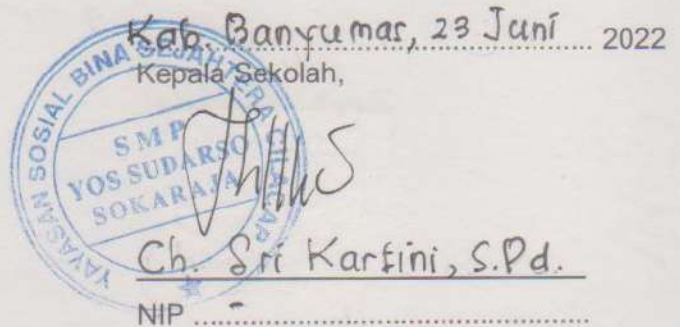 Kab. Banyumas, 23 Juni 2022
Kepala Sekolah,
YAYASAN SOSIAL BINA SEJAHTERA CILACAP
SMP
YOS SUDARSO
SOKARAJA
Ch. Sri Kartini, S.Pd.
NIP -